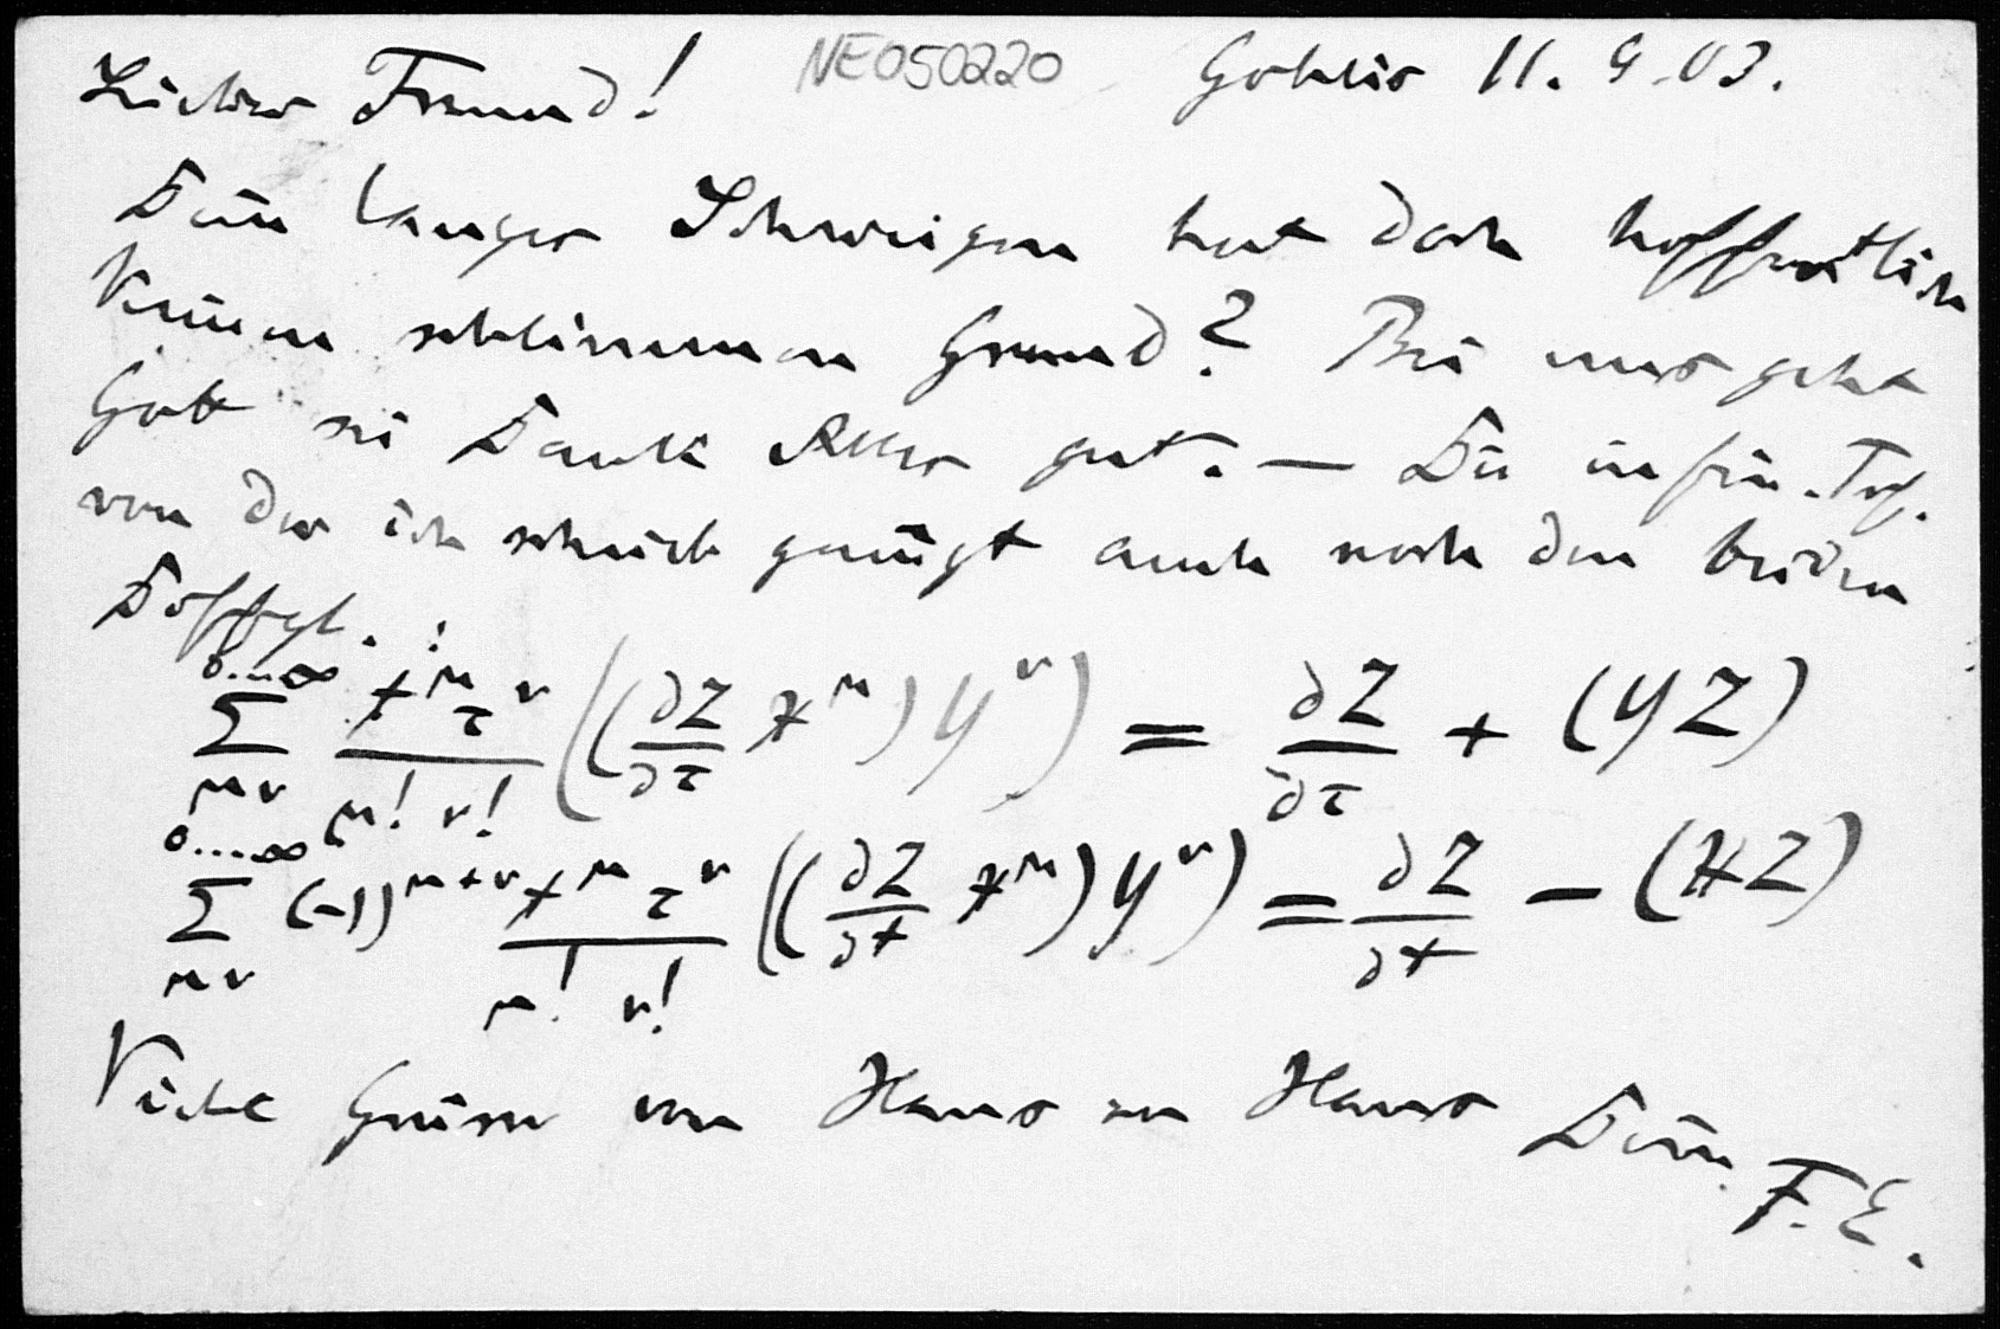 Lieber Freund! NE050220 Gohlis 11. 9. 03.
Dein langes Schweigen hat doch hoffentlich
keinen schlimmen Grund? Bei uns geht
Gott sei Dank Alles gut. — Die infin. Trf.
von der ich schrieb genügt auch noch den beiden
Dffgl.:
0....∞ Σ μν t^μ τ^ν / μ! ν! ((∂Z/∂τ X^μ) Y^ν) = ∂Z/∂τ + (YZ)
0....∞ Σ μν (-1)^{μ+ν} t^μ τ^ν / μ! ν! ((∂Z/∂t X^μ) Y^ν) = ∂Z/∂t - (XZ)
Viele Grüsse von Haus zu Haus Dein
F. E.